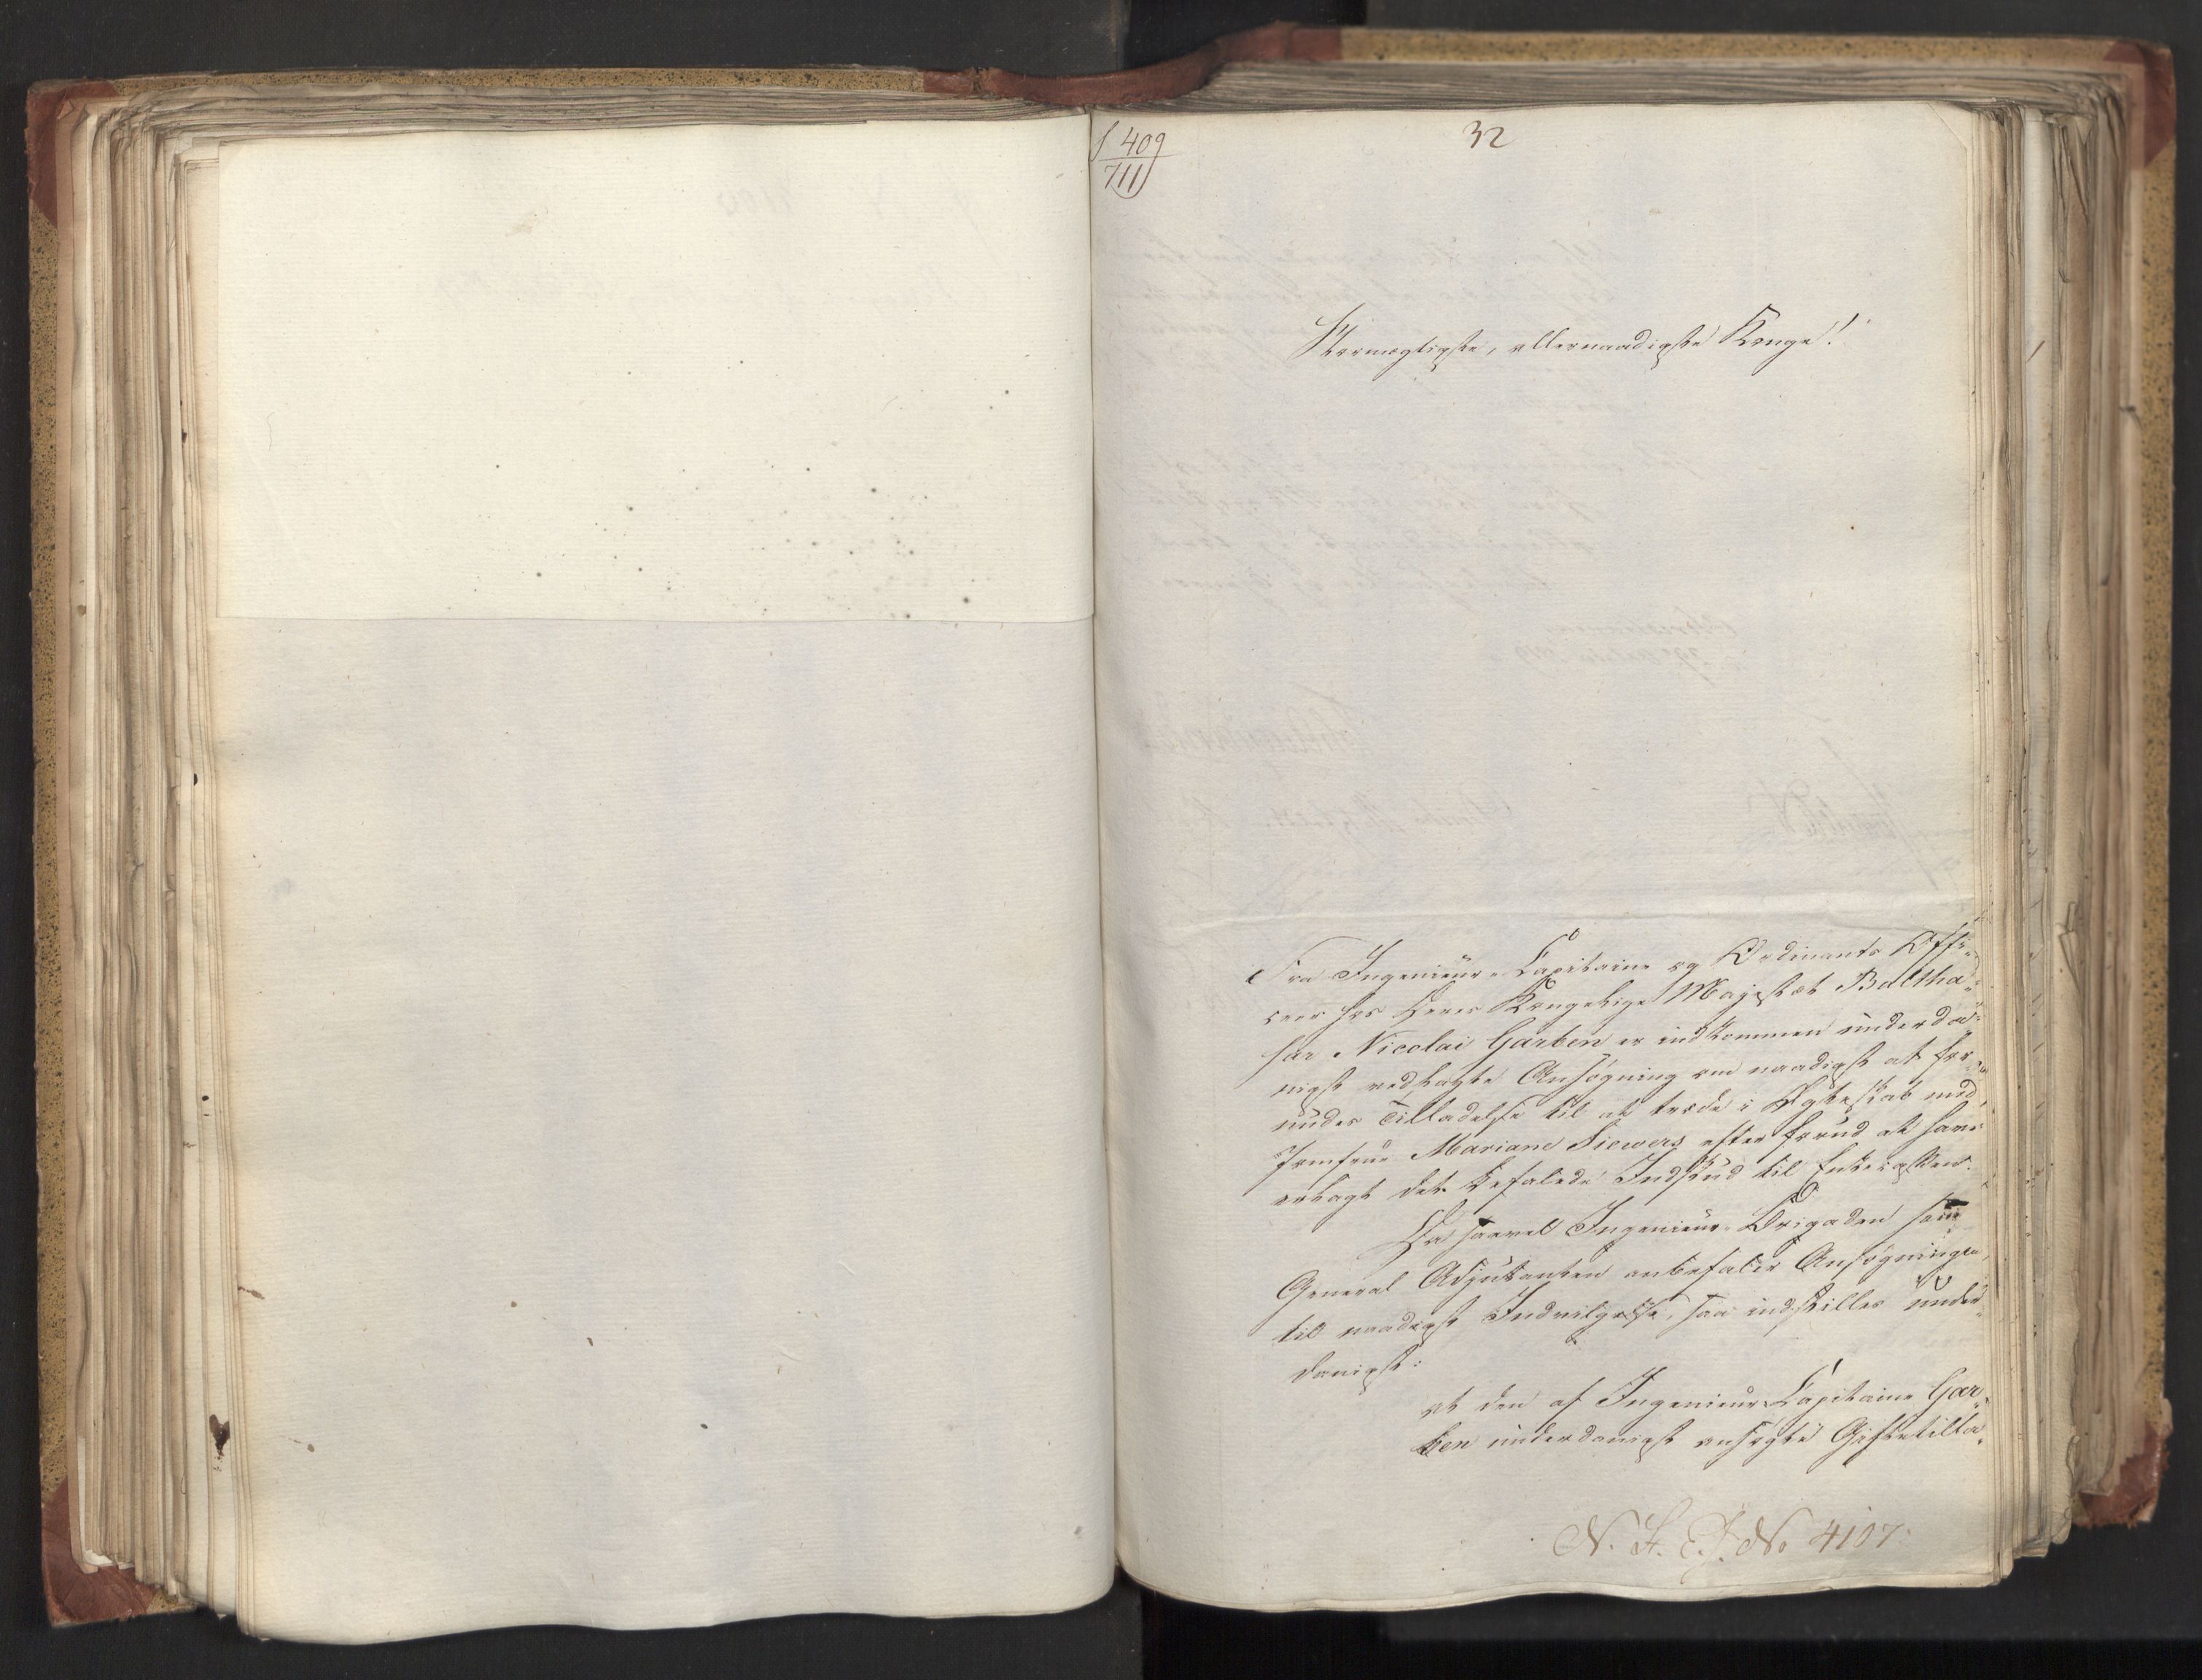 409
711
32
Stormægtigste, allernaadigste Konge!
Fra Ingenieur-Capitaine og Ordinants Offi-
ceer hos Deres Kongelige Majestæt Baltha-
sar Nicolai Garben er indkommen underda-
nigst vedlagte Ansøgning om naadigst at for-
undes Tilladelse til at træde i Ægteskab med
Jomfrue Mariane Siewers efter forud at have
erlagt det befalede Indskud til Enkecassen.
Da saavel Ingenieur-Brigaden som
General Adjutanten anbefaler Ansøgningen
til naadigst Indvilgelse, saa indstilles under-
danigst:
at den af Ingenieur-Capitaine Gar-
ben underdanigst ansøgte Giftetilla-
N. S. E. J. No 4107.